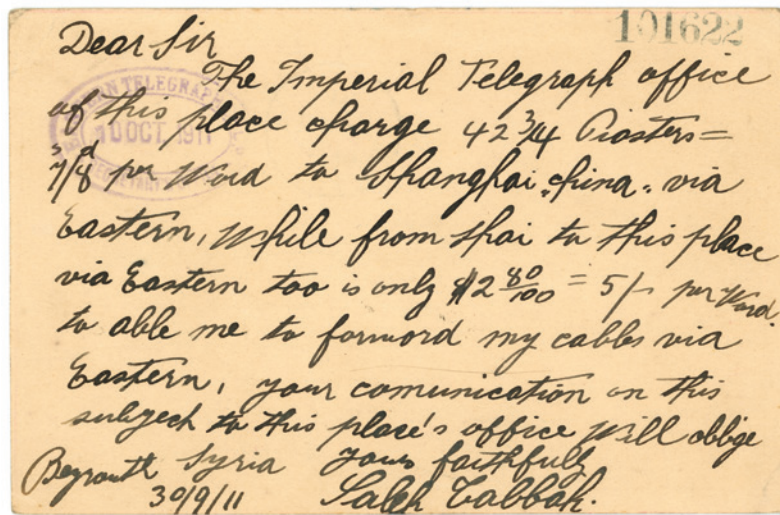 101622
Dear Sir
The Imperial Telegraph office
of this place charge 42 3/4 Piasters =
7s/8d per Word to Shanghai "China" via
Eastern, While from Shai to this place
via Eastern too is only $2 80/100 = 5/- per Word.
to able me to forword my cables via
Eastern, your comunication on this
subject to this place's office Will oblige
Yours faithfully
Beyrouth Syria
30/9/11
Saleh Tabbah.
EASTERN TELEGRAPH
10 OCT. 1911
SECRETARY